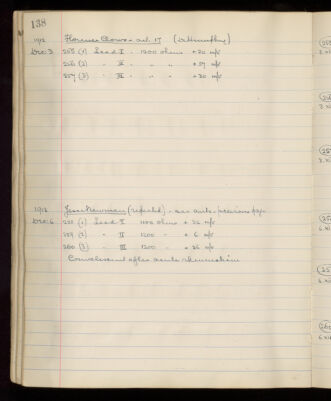 138
1912 Florence Clowes act. 17
Dec: 3 255 (1) Lead I - 1200 ohms + 20 m/v
256 (2) " II - " " + 27 m/v
257 (3) " III - " " + 20 m/v
1912 Jesse Newman (repeated) - see ante - previous page
Dec: 6 258 (1) Lead I 1100 ohms + 25 m/v
259 (2) " II 1200 " + 6 m/v
260 (3) " III 1200 " + 25 m/v
Convalescent after acute rheumatism